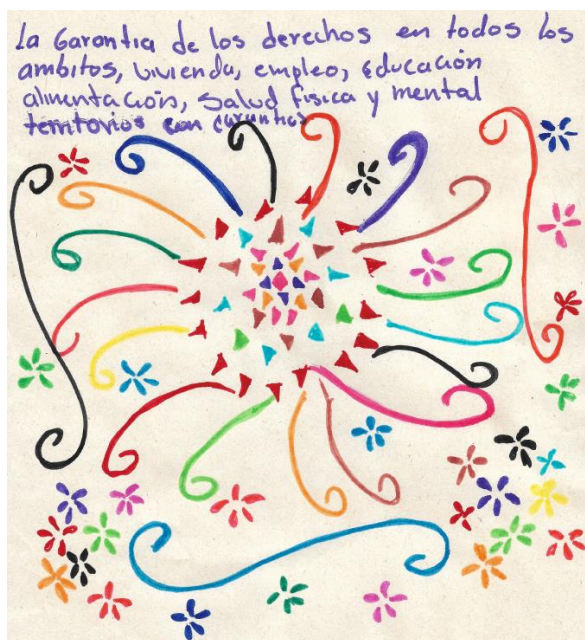 La Garantia de los derechos en todos los
ambitos, vivienda, empleo, Educación
alimentación, Salud fisica y mental
territorios con garantias